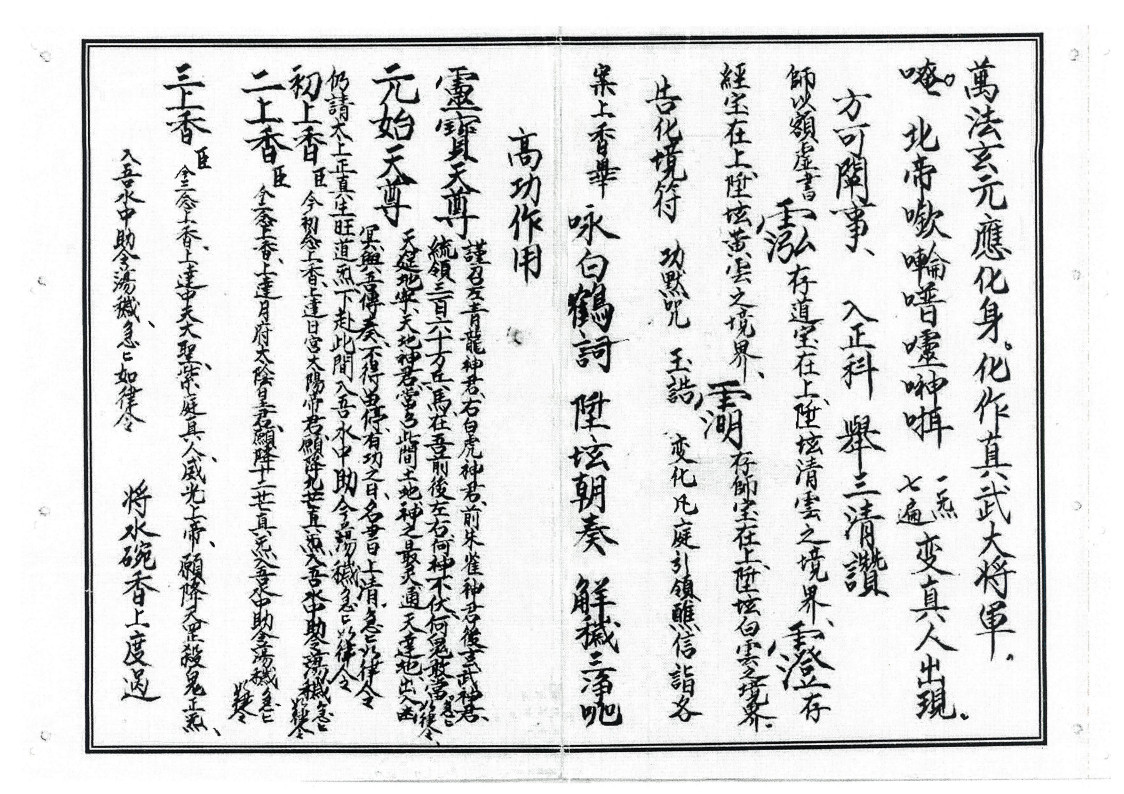 萬法玄元應化身。化作真武大将軍。
唵。北帝㘈𠿑噆𡃤呻㖇 一炁七遍 变真人出現。
方可闡事、 入正科 舉三清讚
師以額虛書 存道宝在上陞坛清雲之境界、 存
經宝在上陞坛黄雲之境界、 存師宝在上陞坛白雲之境界、
告化境符 功默咒 玉誥 変化凡庭引領醮信詣各
案上香畢 咏白鶴詞 陞坛朝奏 解穢三淨吧
高功作用
靈寶天尊 謹召左青龍神君、右白虎神君、前朱雀神君、後玄武神君、
統領三百六十万兵馬在吾前後左右何神不伏何鬼敢當、急亡以律令、
元始天尊 天庭地寧、天地神君當召此間土地、神之最灵、通天達地出入幽
冥與吾傳奏不得畄停、有功之日、名書上清、急亡以律令
仍請太上正真生旺道炁下赴此間入吾水中助令蕩穢急亡以律令
初上香 臣今初念上香、上達日宮太陽帝君、願降九世真炁入吾水中助令蕩穢急亡以律令
二上香 臣今二念上香、上達月府太陰皇君、願降十二世真炁入吾水中助令蕩穢急亡以律令
三上香 臣今三念上香、上達中天大聖、紫庭真人、威光上帝、願降天罡殺鬼正炁、
入吾水中助令蕩穢、急亡如律令 将水碗香上度過